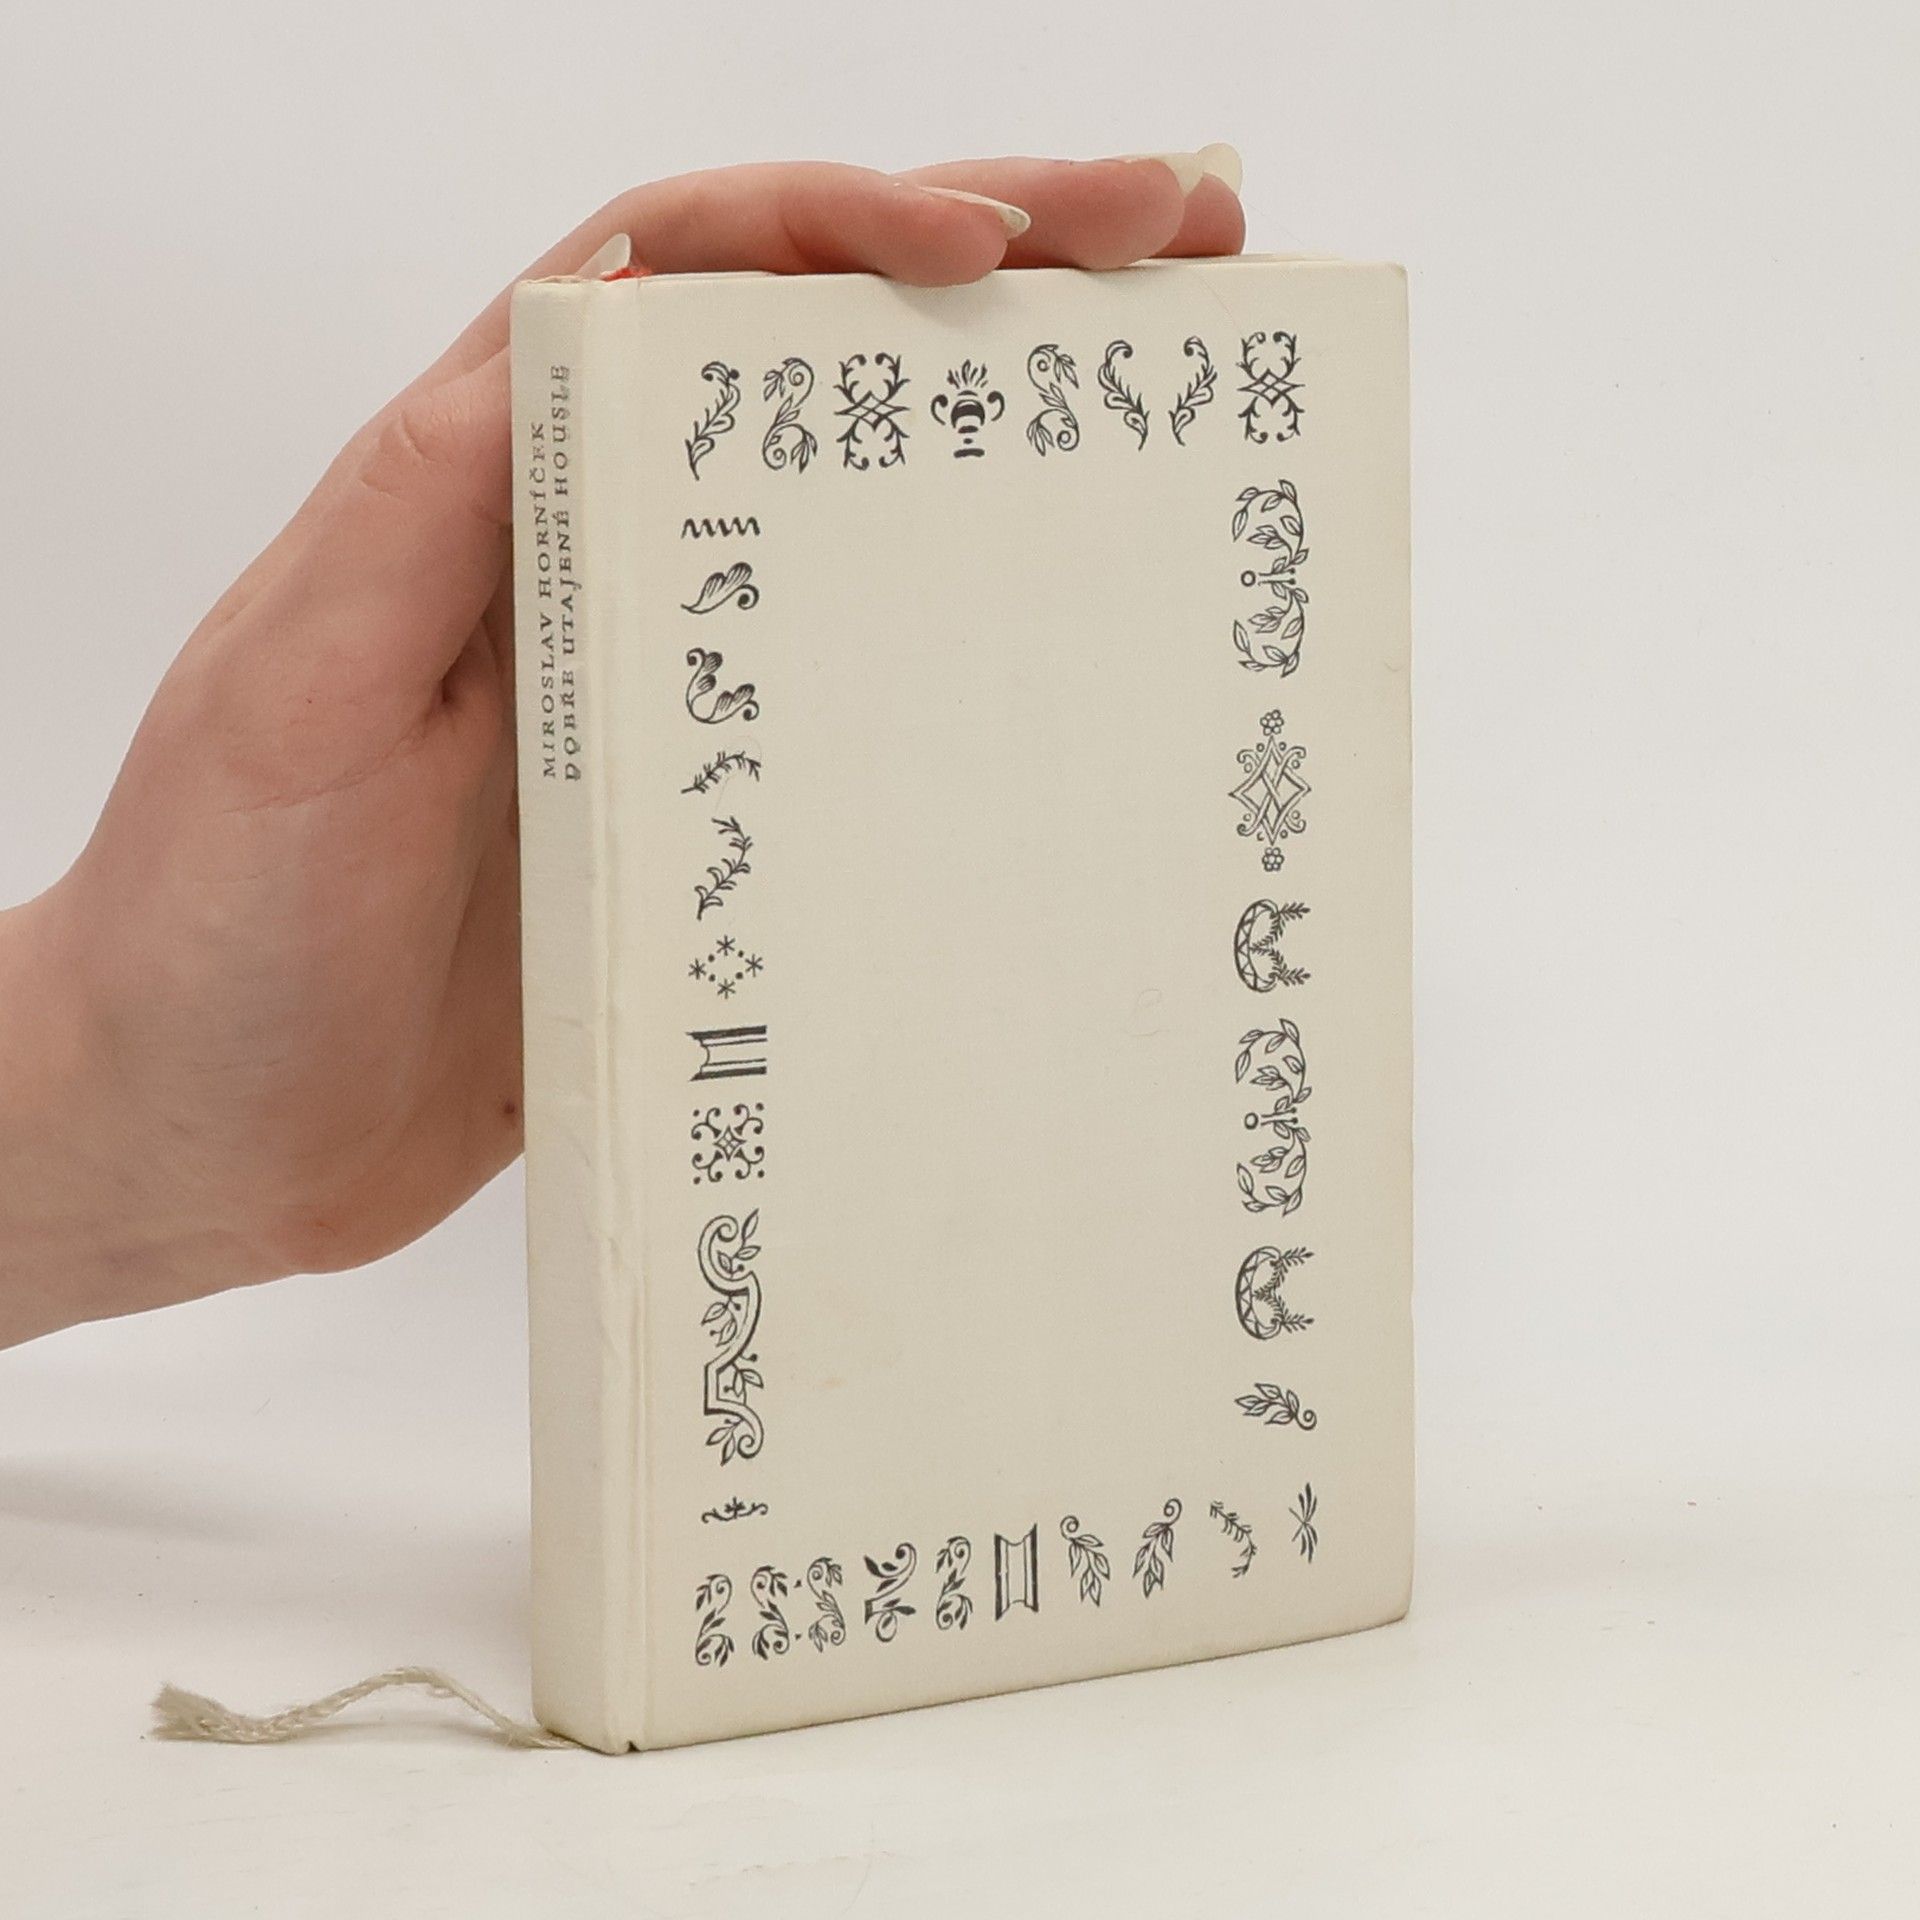 MIROSLAV HORNÍČEK
DOBŘE UTAJENÉ HOUSLE